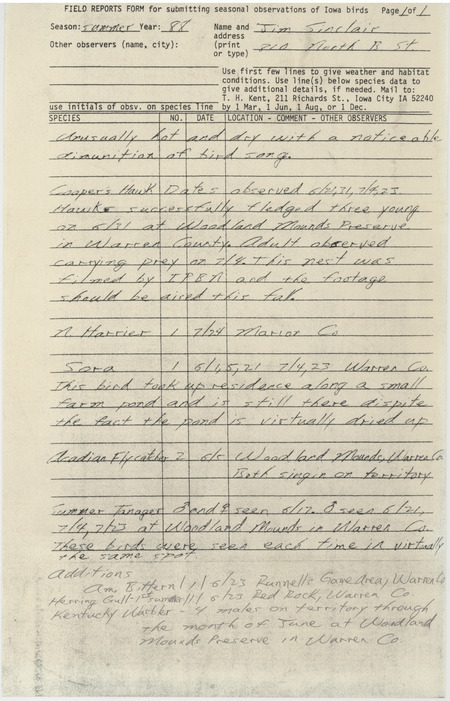 FIELD REPORTS FORM for submitting seasonal observations of Iowa birds Page 1 of 1
Season: summer Year: 88 Name and Jim Sinclair
address
Other observers (name, city): (print 210 North B St.
or type)
Use first few lines to give weather and habitat
conditions. Use line(s) below species data to
give additional details, if needed. Mail to:
T. H. Kent, 211 Richards St., Iowa City IA 52240
use initials of obsv. on species line by 1 Mar, 1 Jun, 1 Aug, or 1 Dec.
SPECIES NO. DATE LOCATION - COMMENT - OTHER OBSERVERS
Unusually hot and dry with a noticeable
dimunition of bird song.
Coopers Hawk Dates observed 6/21,31, 7/4,23
Hawks successfully fledged three young
on 6/31 at Woodland Mounds Preserve
in Warren County. Adult observed
carrying prey on 7/4. This nest was
filmed by IPBN and the footage
should be aired this fall.
N Harrier 1 7/24 Marion Co
Sora 1 6/1,5,21 7/4,23 Warren Co.
This bird took up residence along a small
farm pond and is still there dispite
the fact the pond is virtually dried up
Acadian Flycatcher 2 6/5 Woodland Mounds, Warren Co
Both singin on territory
Summer Tanager ♂ and ♀ seen 6/17. ♂ seen 6/21,
7/4, 7/23 at Woodland Mounds in Warren Co.
These birds were seen each time in virtually
the same spot.
Additions
Am. Bittern 1 6/23 Runnells Game Area, Warren Co
Herring Gull- 1 6/23 Red Rock, Warren Co.
Kentucky Warbler - 4 males on territory through
the month of June at Woodland
Mounds Preserve in Warren Co.